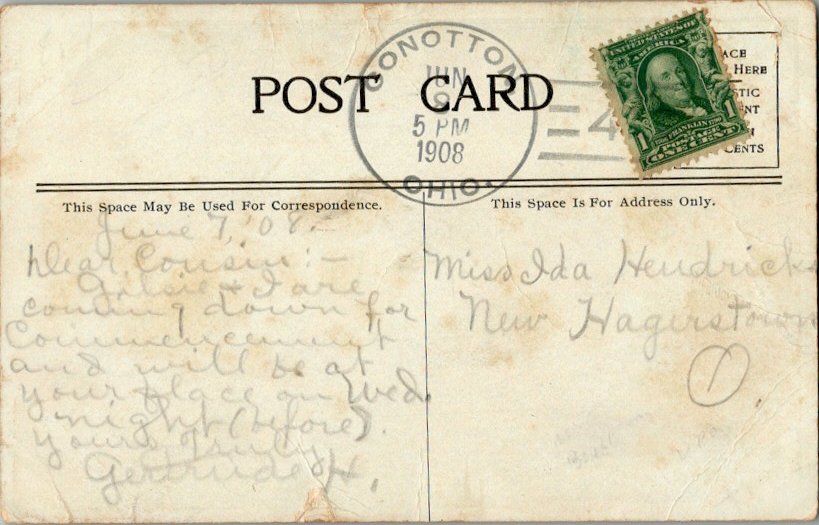 POST CARD
CONOTTON
JUN
8
5 PM
1908
OHIO.
4
UNITED STATES OF
AMERICA
FRANKLIN
1 POSTAGE 1
ONE CENT
HERE
CENTS
This Space May Be Used For Correspondence.
This Space Is For Address Only.
June 7, '08.
Dear Cousin:-
& I are
coming down for
Commencement
and will be at
your place on Wed.
night (before).
Yours Truly
Gertrude H.
Miss Ida Hendricks
New Hagerstown
1